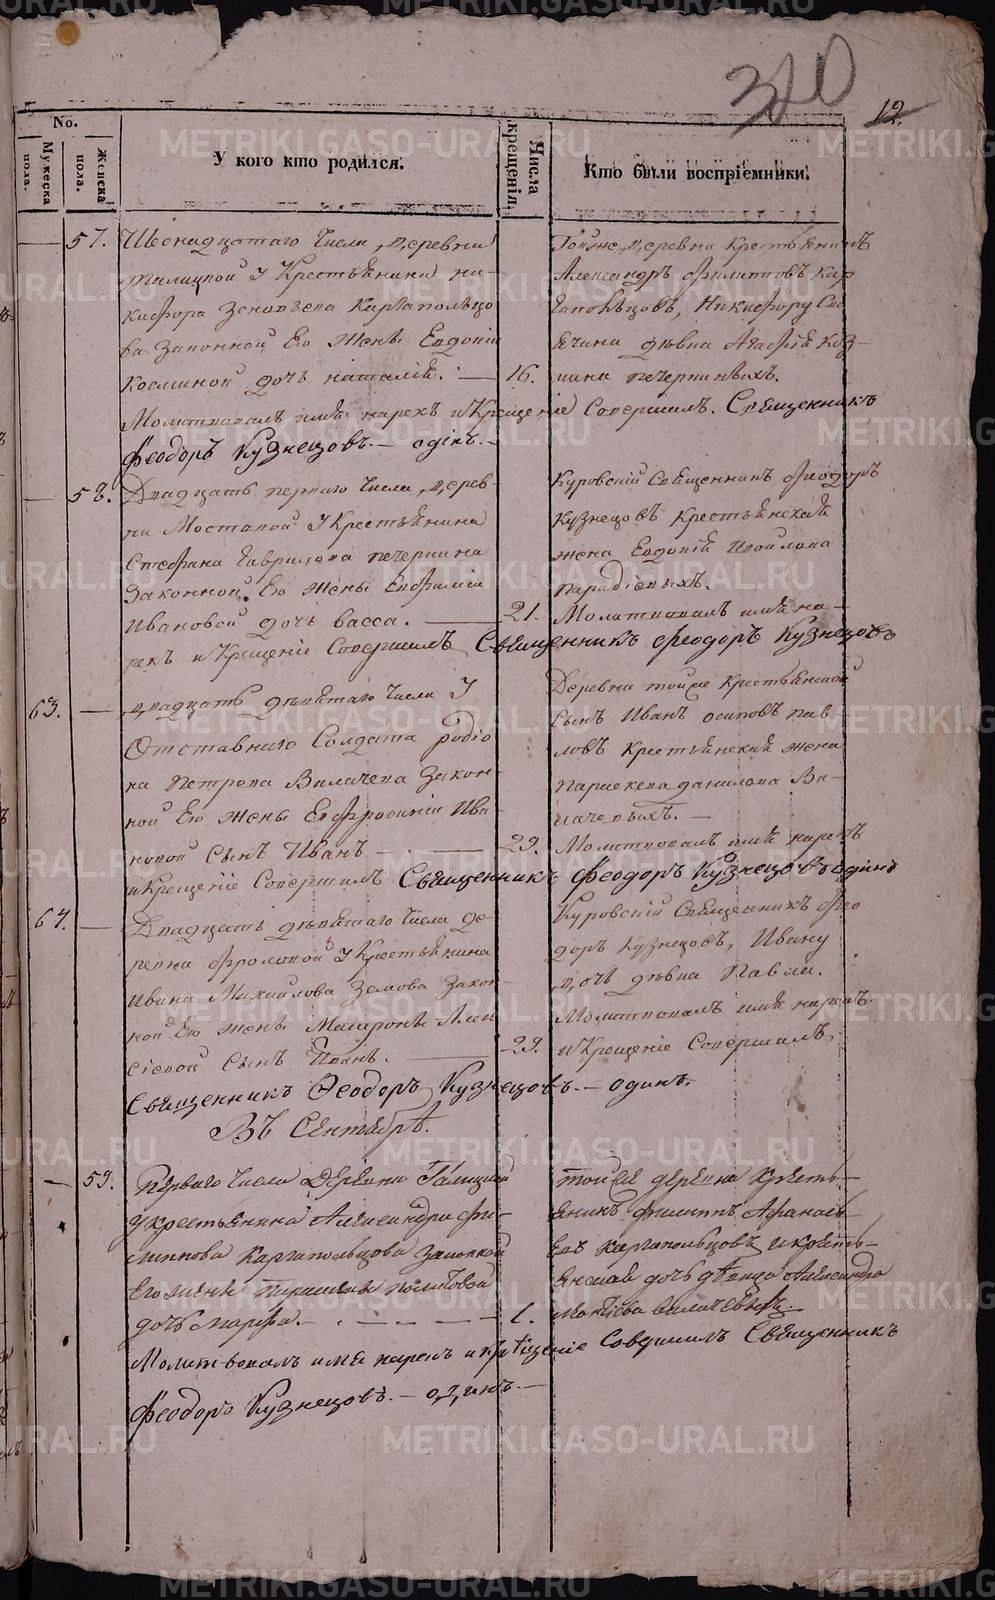 320
12.
No.
Мужеска пола.
Женска пола.
У кого кто родился.
Числа крещенія.
Кто были воспріемники.
57. Шеснадцатаго Числа деревни
Галицкой У Крестьянина ни-
кифора Зеновьева Каргапольцо
ва законной Его жены Евдокіи
Космикой дочь наталія. 16.
Тойже деревни Крестьянинъ
Александръ филипповъ Кар
гапольцовъ, Никифору
дѣвка Агафія Куз-
мина печеркиныхъ.
Молитвовалъ имя нарекъ и Крещеніе Совершилъ. Священникъ
Феодоръ Кузнецовъ. — одинъ. —
58. Двадцать перваго Числа дерев-
ни Мостовой У Крестьянина
Стефана Гаврилова печеркина
Законной Его Жены Евфиміи
Ивановой дочь васса. 21.
Куровскій Священникъ Феодоръ
Кузнецовъ Крестьянская
жена Евдокія
Молитвовалъ имя на-
рекъ и Крещеніе Совершилъ Священникъ Феодоръ Кузнецовъ
63. двадцать девятаго Числа У
Отставнаго Солдата родіо
на Петрова Вилачева Закон-
ной Его Жены Евфросиніи Ива
новой Сынъ Иванъ — 29.
Деревни тойже Крестьянской
Сынъ Иванъ осиповъ пав
ловъ Крестьянская жена
Параскева данилова Ви-
лачевыхъ. —
Молитвовалъ имя нарекъ
и Крещеніе Совершилъ Священникъ Феодоръ Кузнецовъ одинъ
64. Двадцать девятаго Числа де
ревни Фроловой У Крестьянина
Ивана Михайлова Зомова Закон
ной Его жены Матроны Алек
сіевой Сынъ Иванъ. 29.
Куровскій Священникъ Фео
доръ Кузнецовъ, Ивану
дочь дѣвка Павла.
Молитвовалъ имя нарекъ
и Крещеніе Совершилъ
Священникъ Феодоръ Кузнецовъ. — одинъ.
Въ Сентябрѣ.
59. Перваго числа Деревни Галицкой
у крестьянина Александра фи-
липпова Каргапольцова законной
Его жены Параскевы
дочь Марфа. 1.
тойже деревни Кресть-
янинъ филиппъ Афанась-
евъ каргапольцовъ и кресть-
янская дочь дѣвица Александра
вилачевыхъ.
Молитвовалъ имя нарекъ и крещеніе Совершилъ Священникъ
Феодоръ Кузнецовъ. — одинъ. —
METRIKI.GASO-URAL.RU